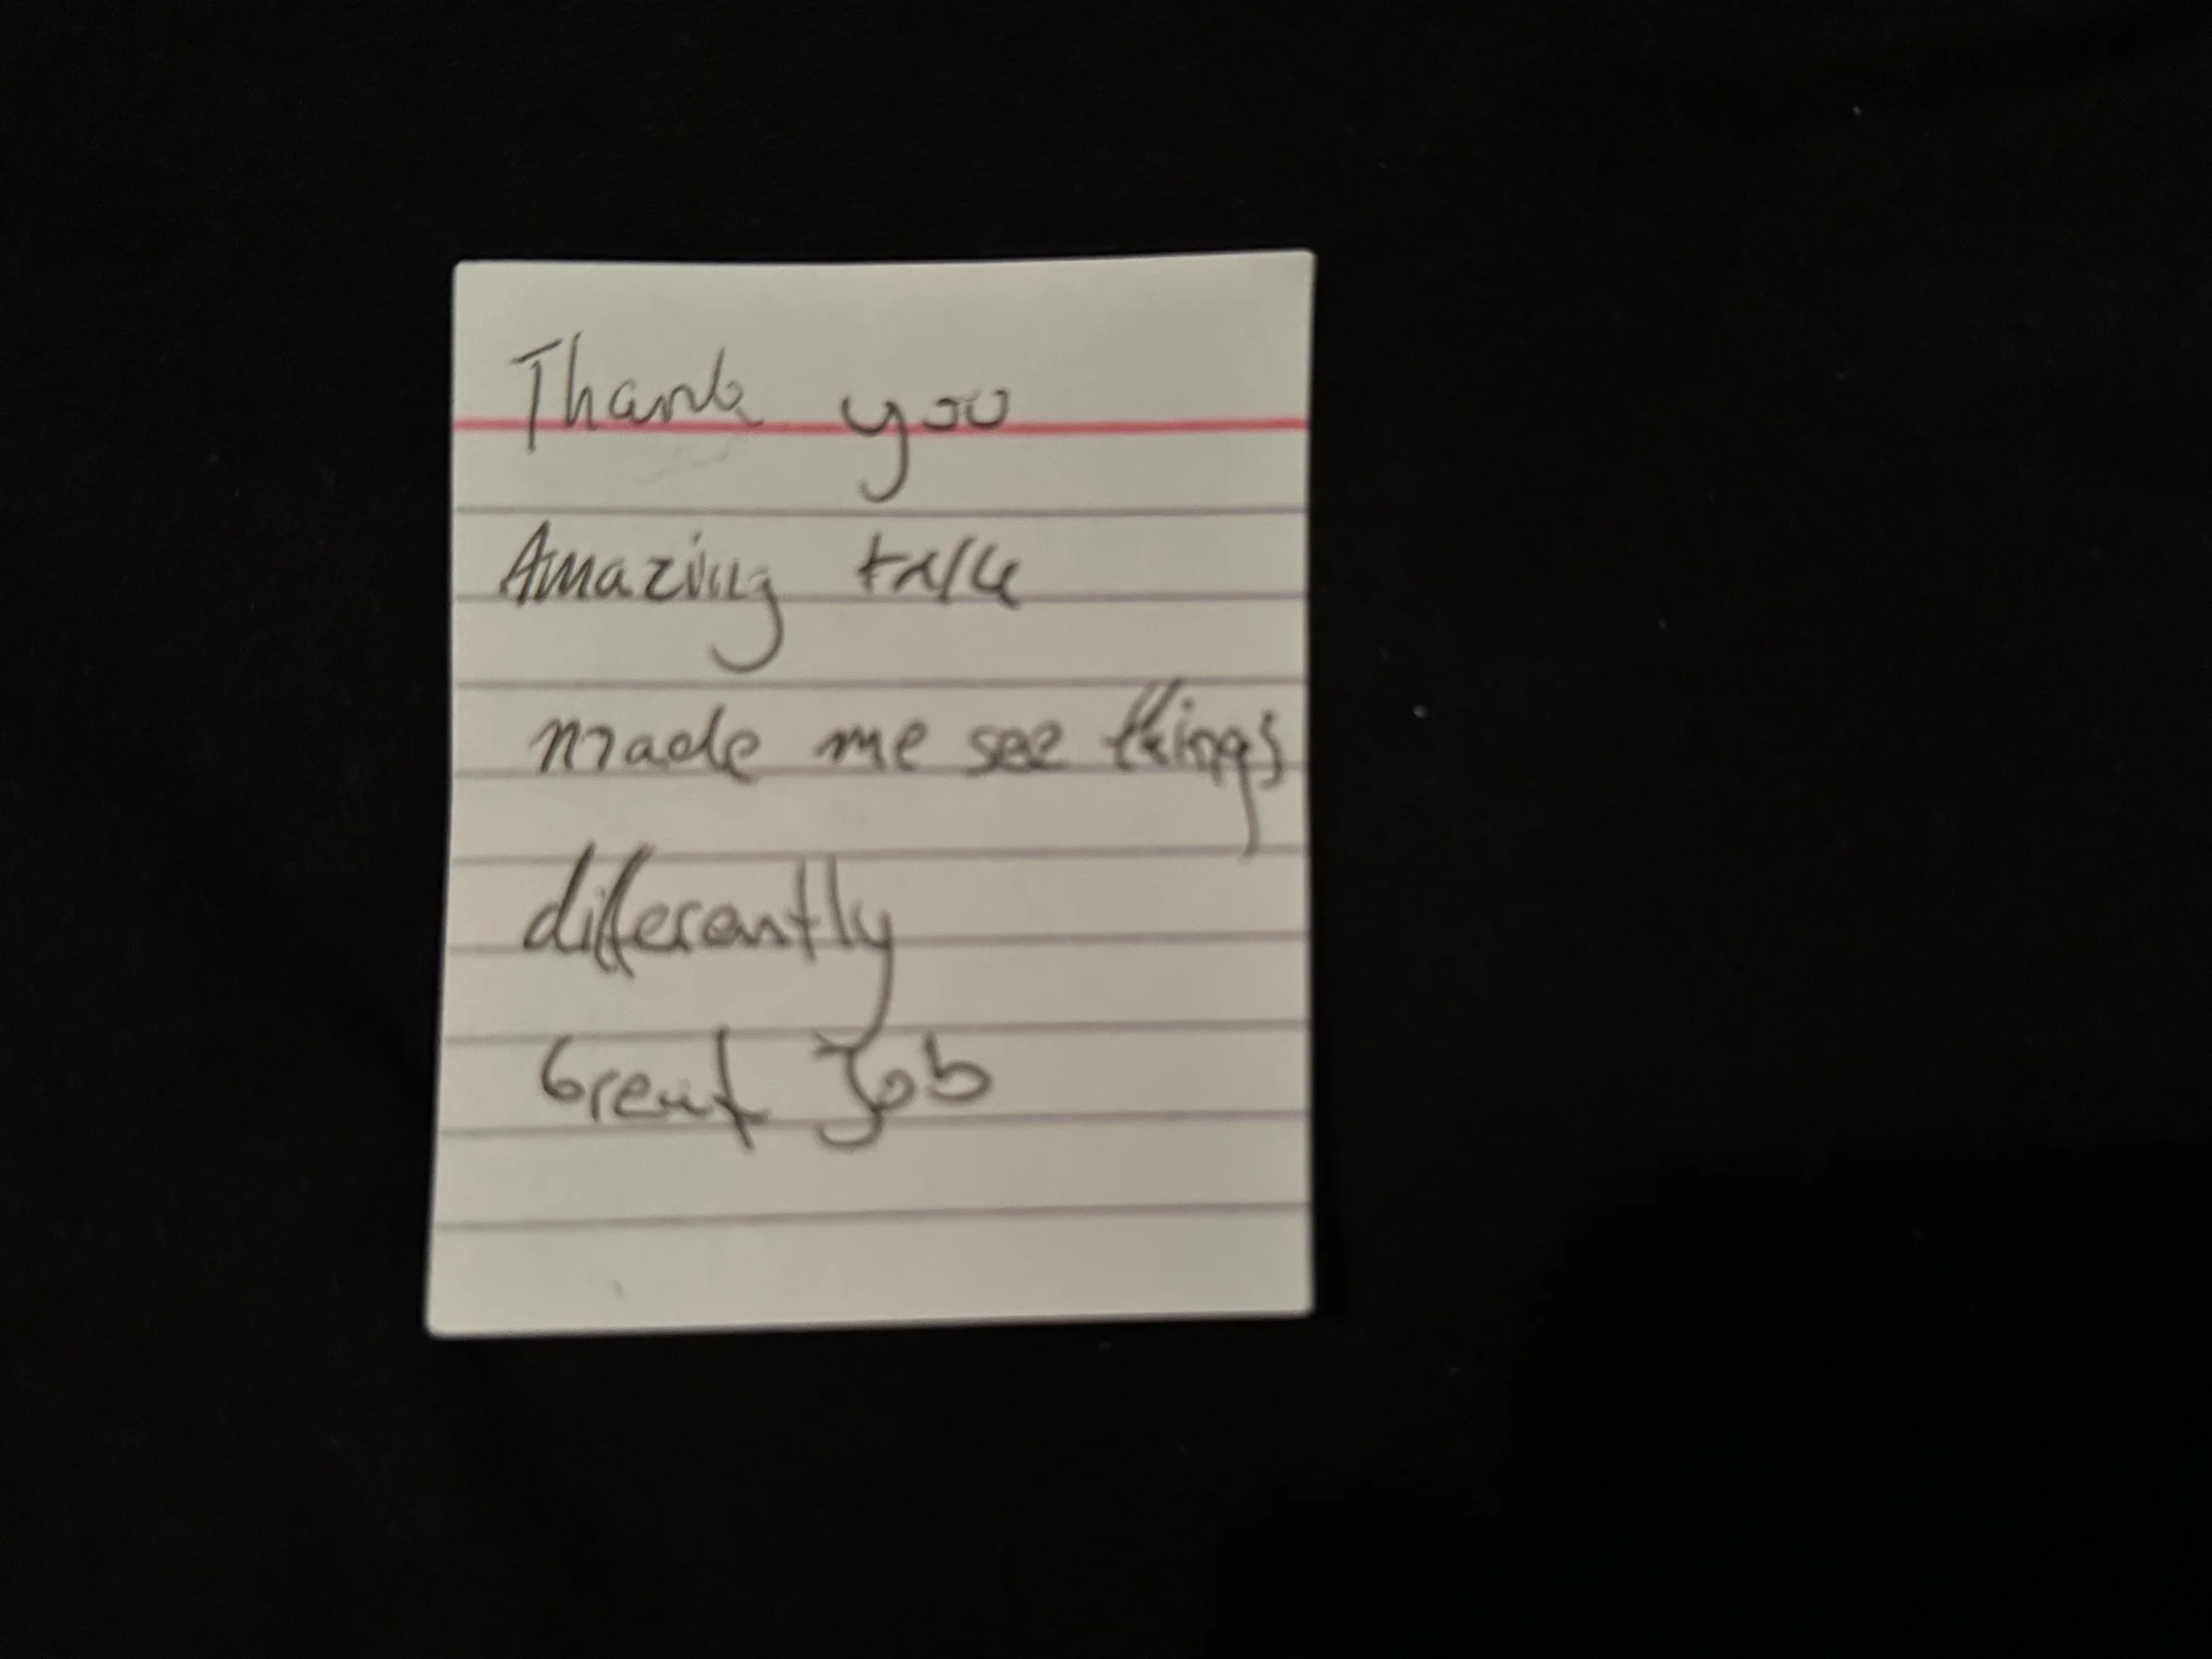 Thank you
Amazing talk
made me see things
differently
Great Job